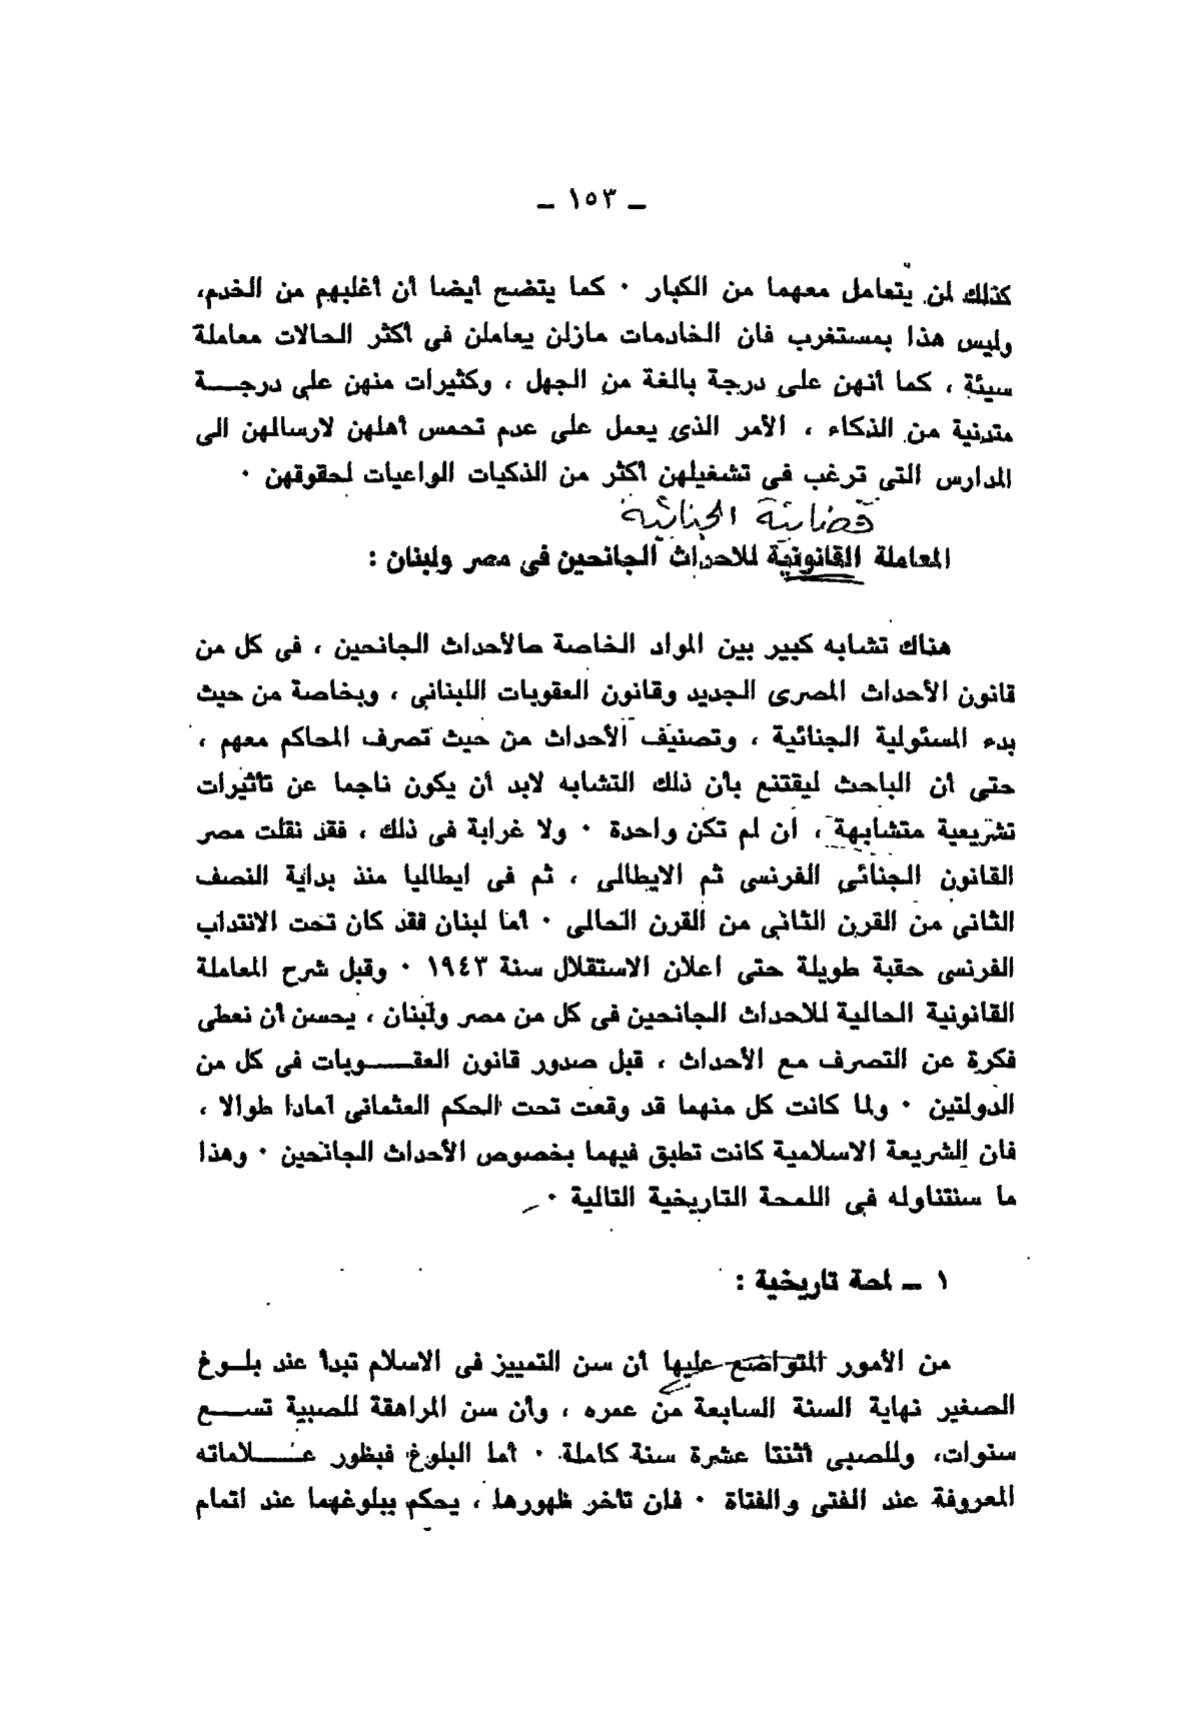 ــ ١٥٣ ــ
كذلك لمن يتعامل معهما من الكبار ٠ كما يتضح أيضا أن أغلبهم من الخدم،
وليس هذا بمستغرب فان الخادمات مازلن يعاملن فى أكثر الحالات معاملة
سيئة ، كما أنهن على درجة بالغة من الجهل ، وكثيرات منهن على درجـــة
متدنية من الذكاء ، الأمر الذى يعمل على عدم تحمس أهلهن لارسالهن الى
المدارس التى ترغب فى تشغيلهن أكثر من الذكيات الواعيات لحقوقهن ٠
قضائية الجنائية
المعاملة القانونية للاحداث الجانحين فى مصر ولبنان :
هناك تشابه كبير بين المواد الخاصة صالأحداث الجانحين ، فى كل من
قانون الأحداث المصرى الجديد وقانون العقوبات اللبنانى ، وبخاصة من حيث
بدء المسئولية الجنائية ، وتصنيف الأحداث من حيث تصرف المحاكم معهم ،
حتى أن الباحث ليقتنع بأن ذلك التشابه لابد أن يكون ناجما عن تأثيرات
تشريعية متشابهة ، أن لم تكن واحدة ٠ ولا غرابة فى ذلك ، فقد نقلت مصر
القانون الجنائى الفرنسى ثم الايطالى ، ثم فى ايطاليا منذ بداية النصف
الثانى من القرن الثانى من القرن الحالى ٠ أما لبنان فقد كان تحت الانتداب
الفرنسى حقبة طويلة حتى اعلان الاستقلال سنة ١٩٤٣ ٠ وقبل شرح المعاملة
القانونية الحالية للاحداث الجانحين فى كل من مصر ولبنان ، يحسن أن نعطى
فكرة عن التصرف مع الأحداث ، قبل صدور قانون العقـــوبات فى كل من
الدولتين ٠ ولما كانت كل منهما قد وقعت تحت الحكم العثمانى آمادا طوالا ،
فان الشريعة الاسلامية كانت تطبق فيهما بخصوص الأحداث الجانحين ٠ وهذا
ما سنتناوله فى اللمحة التاريخية التالية ٠
١ ــ لمحة تاريخية :
من الأمور المتواضع عليها أن سن التمييز فى الاسلام تبدأ عند بلــوغ
الصغير نهاية السنة السابعة من عمره ، وأن سن المراهقة للصبية تســـع
سنوات، وللصبى أثنتا عشرة سنة كاملة ٠ أما البلوغ فبظهور عـــلاماته
المعروفة عند الفتى والفتاة ٠ فان تأخر ظهورها ، يحكم ببلوغهما عند اتمام